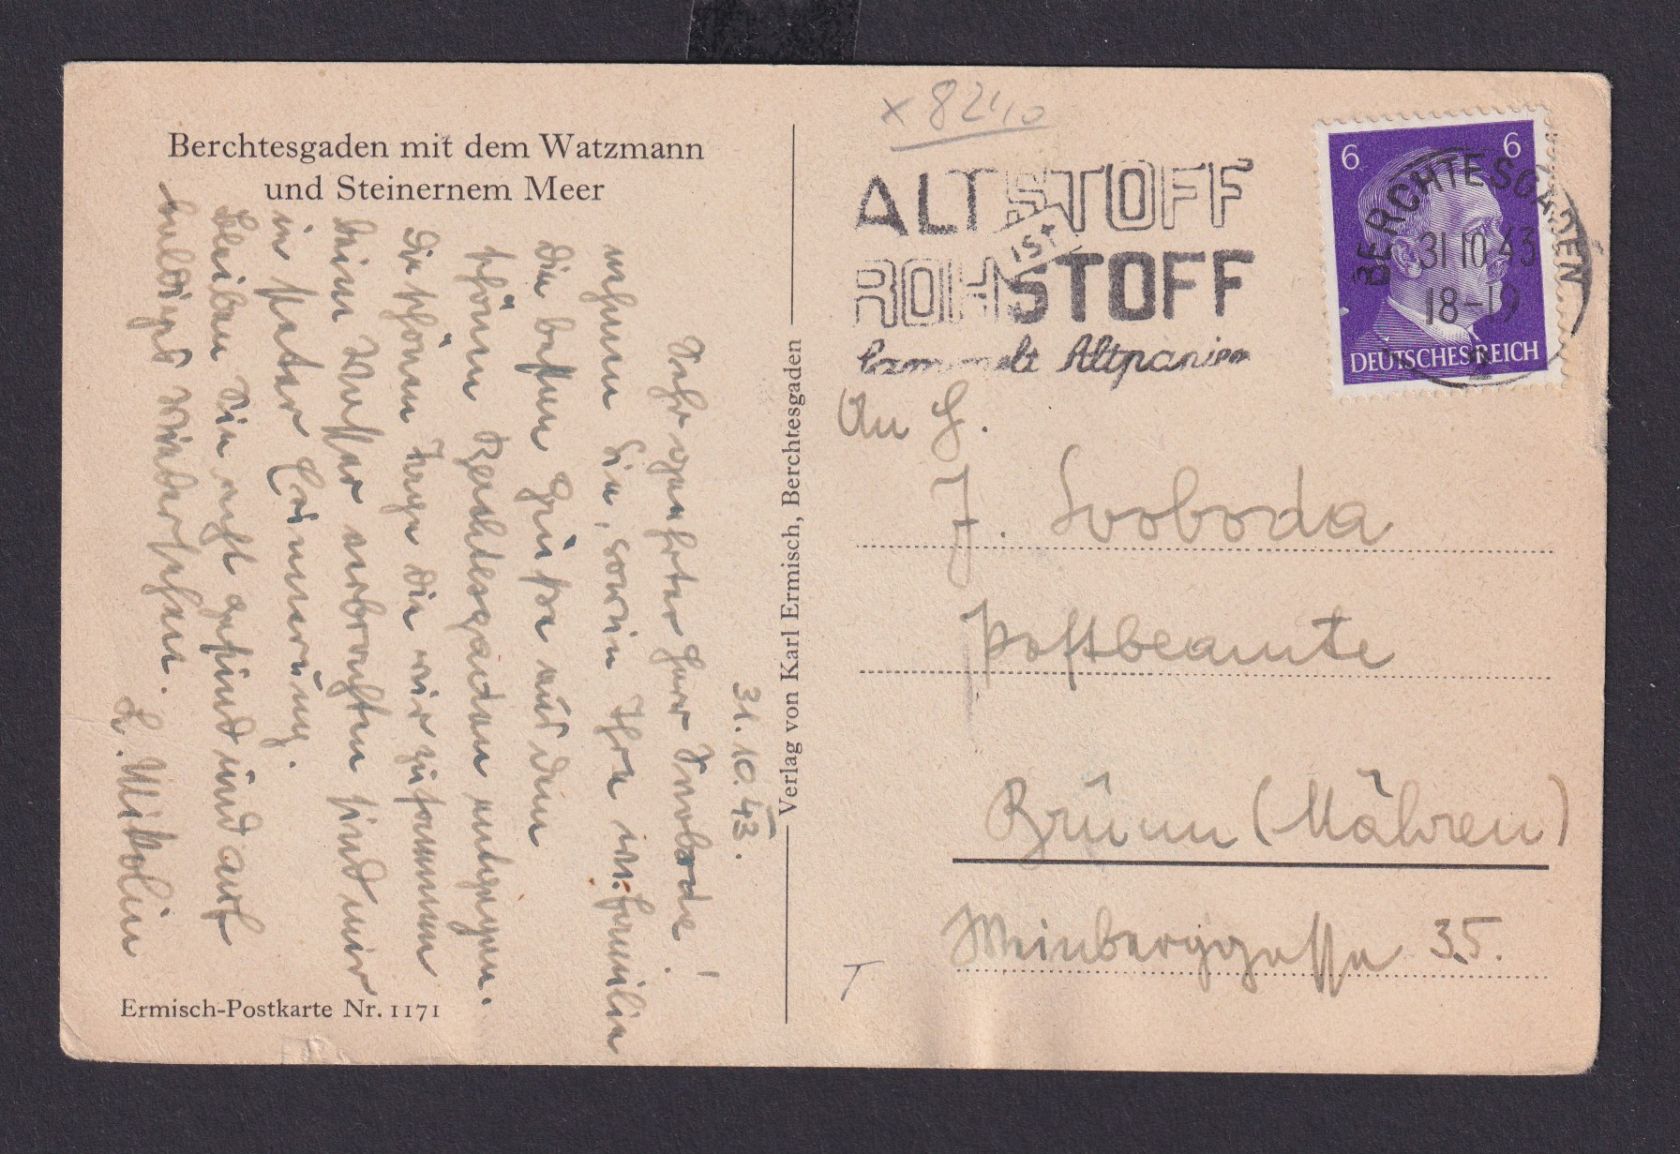 Berchtesgaden mit dem Watzmann
und Steinernem Meer
31. 10. 43.
Sehr geehrter Herr Svoboda!
nehmen Sie, sowie Ihre w. Familie
die besten Grüße aus dem
schönen Berchtesgaden entgegen.
Die schönen Tage die wir zusammen
beim verbrachten sind mir
in steter Erinnerung.
Bleiben Sie recht gesund und auf
baldiges Wiedersehen.
L. Mikolin
Ermisch-Postkarte Nr. 1171
Verlag von Karl Ermisch, Berchtesgaden
x 8240
ALTSTOFF
IST
ROHSTOFF
Sammelt Altpapier
6 6
DEUTSCHES REICH
BERCHTESGADEN
31 10 43
18-19
An H.
J. Svoboda
Postbeamte
Brünn (Mähren)
Weinberggasse 35.
T